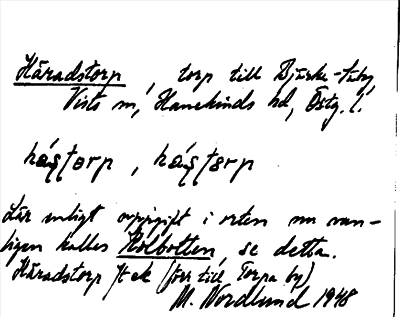 Häradstorp, torp till Djurke-Täby,
Vists sn, Hanekinds hd, Östg. l.
hás̨torp, hás̨tɵrp
Lär enligt uppgift i orten nu van-
ligen kallas Kolbotten, se detta.
Häradstorp Jt ek (förr till Torpa by)
M. Nordlund 1948